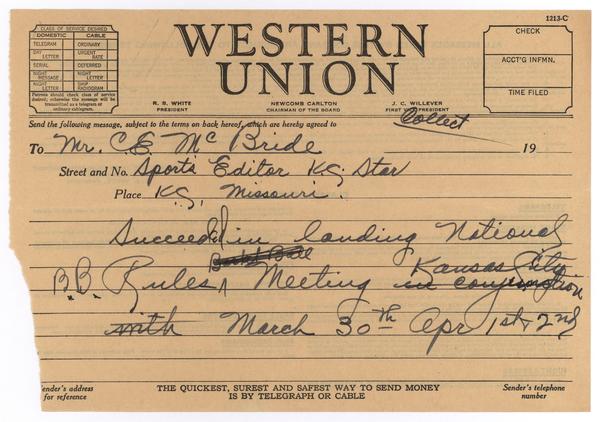 1213-C
CLASS OF SERVICE DESIRED
DOMESTIC CABLE
TELEGRAM ORDINARY
DAY LETTER URGENT RATE
SERIAL DEFERRED
NIGHT MESSAGE NIGHT LETTER
NIGHT LETTER SHIP RADIOGRAM
Patrons should check class of service
desired; otherwise the message will be
transmitted as a telegram or
ordinary cablegram.
WESTERN
UNION
CHECK
ACCT'G INFMN.
TIME FILED
R. B. WHITE
PRESIDENT
NEWCOMB CARLTON
CHAIRMAN OF THE BOARD
J. C. WILLEVER
FIRST VICE-PRESIDENT
Send the following message, subject to the terms on back hereof, which are hereby agreed to
Collect
To Mr. C. E. McBride 19
Street and No. Sports Editor K.C. Star
Place K.C. Missouri.
Succeeded in landing National
Basket Ball
B.B. Rules Meeting Kansas City
in conjunction
with March 30th Apr 1st & 2nd
Sender's address
for reference
THE QUICKEST, SUREST AND SAFEST WAY TO SEND MONEY
IS BY TELEGRAPH OR CABLE
Sender's telephone
number